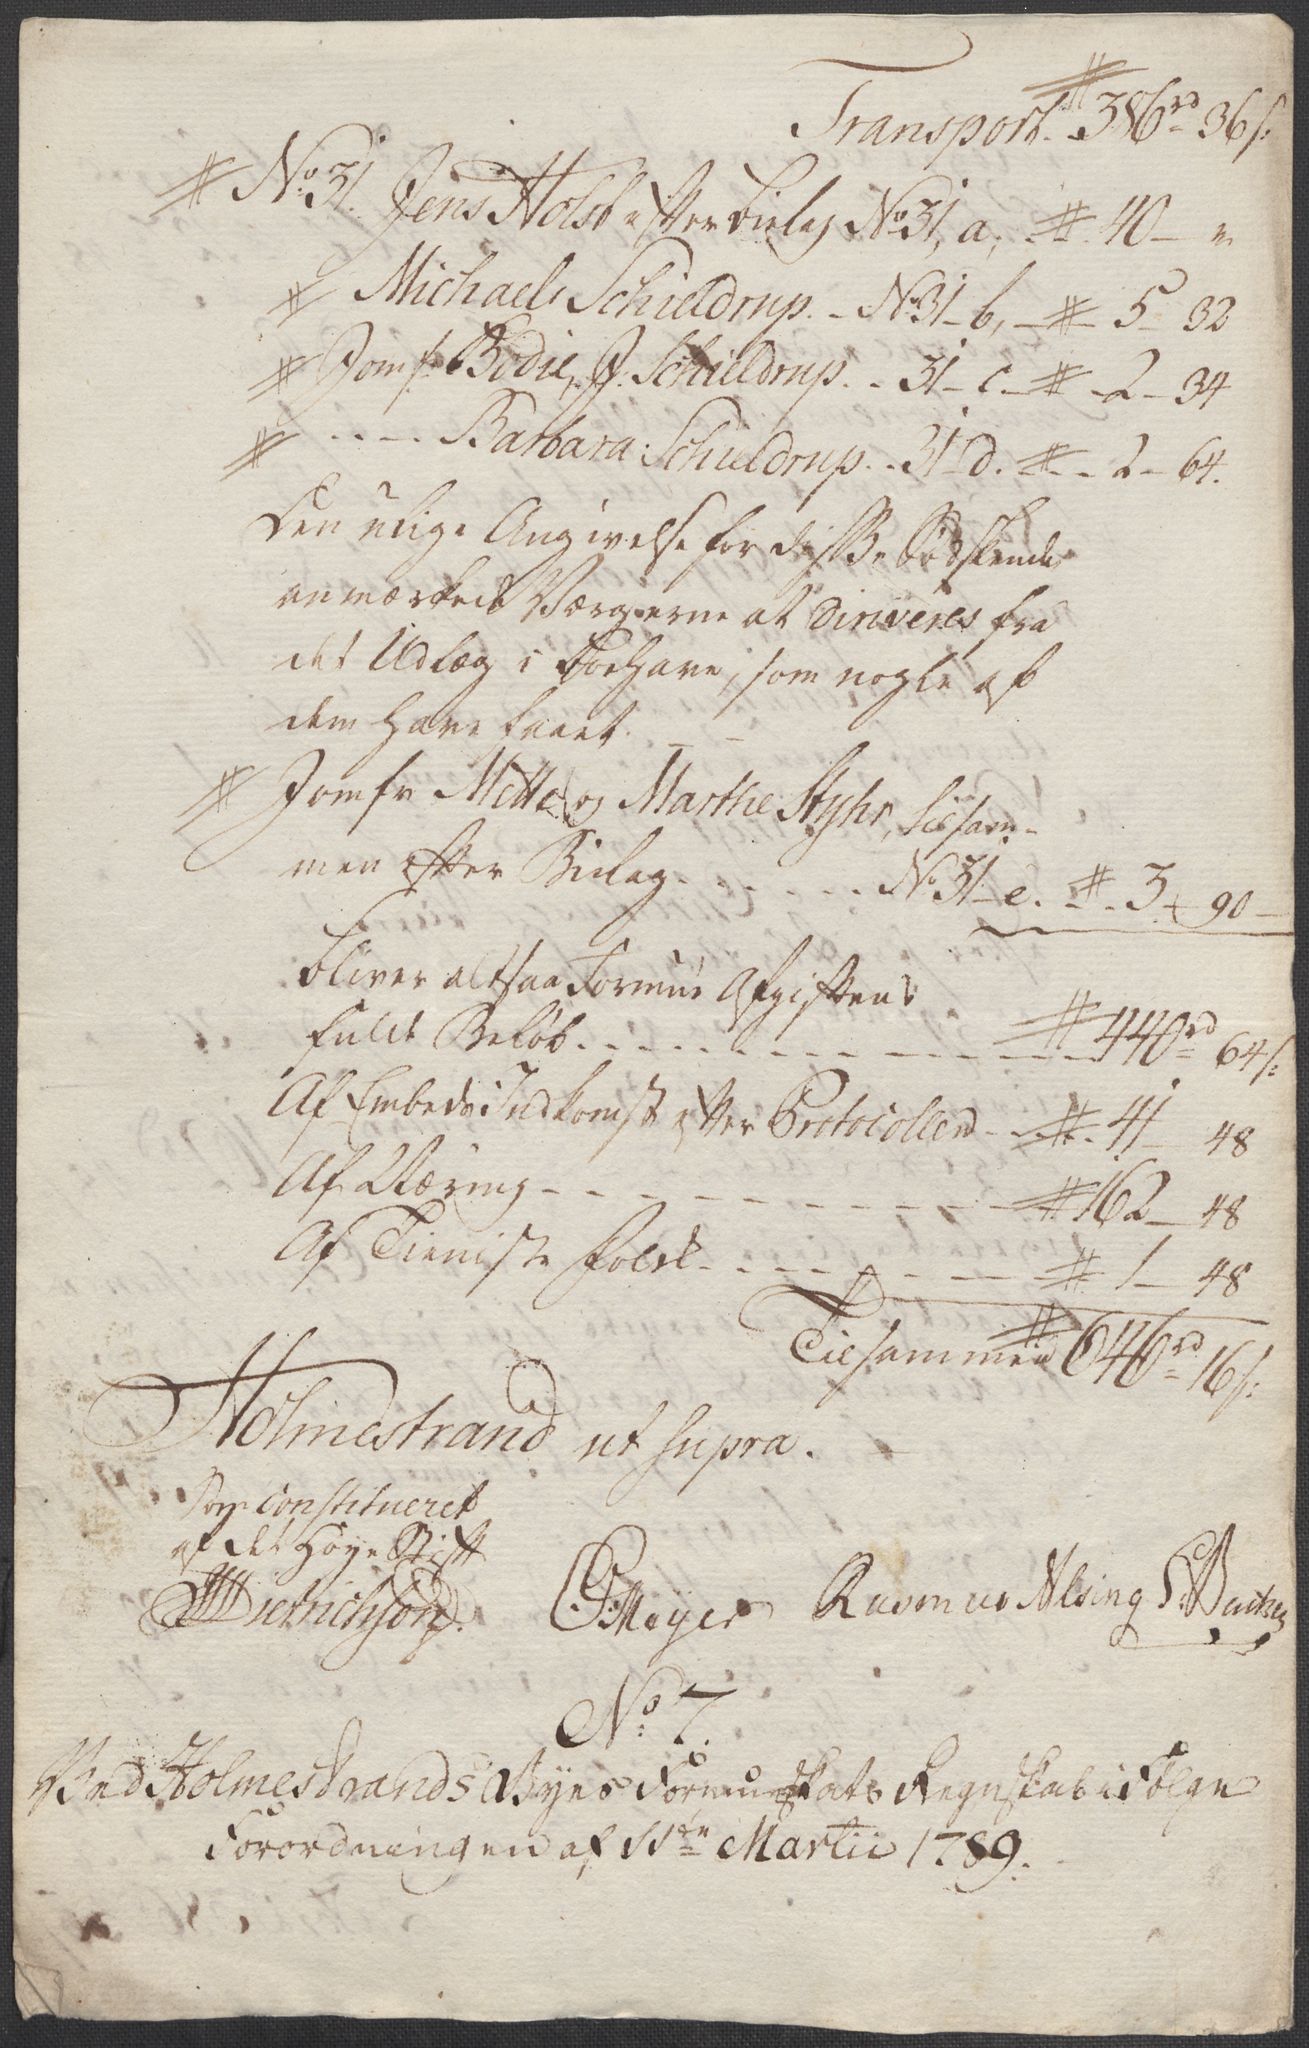 Transport # 386rd 36s:
# No: 31. Jens Holst efter bielag No 31, a, # 40 - "
# Michael Schieldrup. - No 31 - b, - # 5 - 32
# Jomf: Bodil, J. Schieldrup. - 31 - c. - # - 2 - 34
# - - - . - Barbara Schieldrup. - 31 - d. # - - 2 - 64.
den ulige Angivelse for disse Sødskende
anmærked Værgerne at deriveres fra
det Udlæg i Boehave, som nogle af
dem have faaet. - -
# Jomfr Mette og Marthe Styhr, tilsam-
men efter Bielag - - - - - No 31 - e. # 3 - 90 -
bliver altsaa Formue Afgiftens
fulde Beløb - - - - - # 440rd 64s:
Af Embeds Indkomst efter Protocollen - # 41 - 48
Af Næring - - - - - # 162 - 48
Af Tieniste Folck - - - - - # 1 - 48
Tilsammen # 646rd 16s:
Holmestrand ut supra.
Som constitueret
af det Høye Stift
Dietrichson.
Meyer Rasmus Alsing Backer
No 7.
Ved Holmestrands Byes Formueskats Regnskab i Følge
Forordningen af 11te Martii 1789.